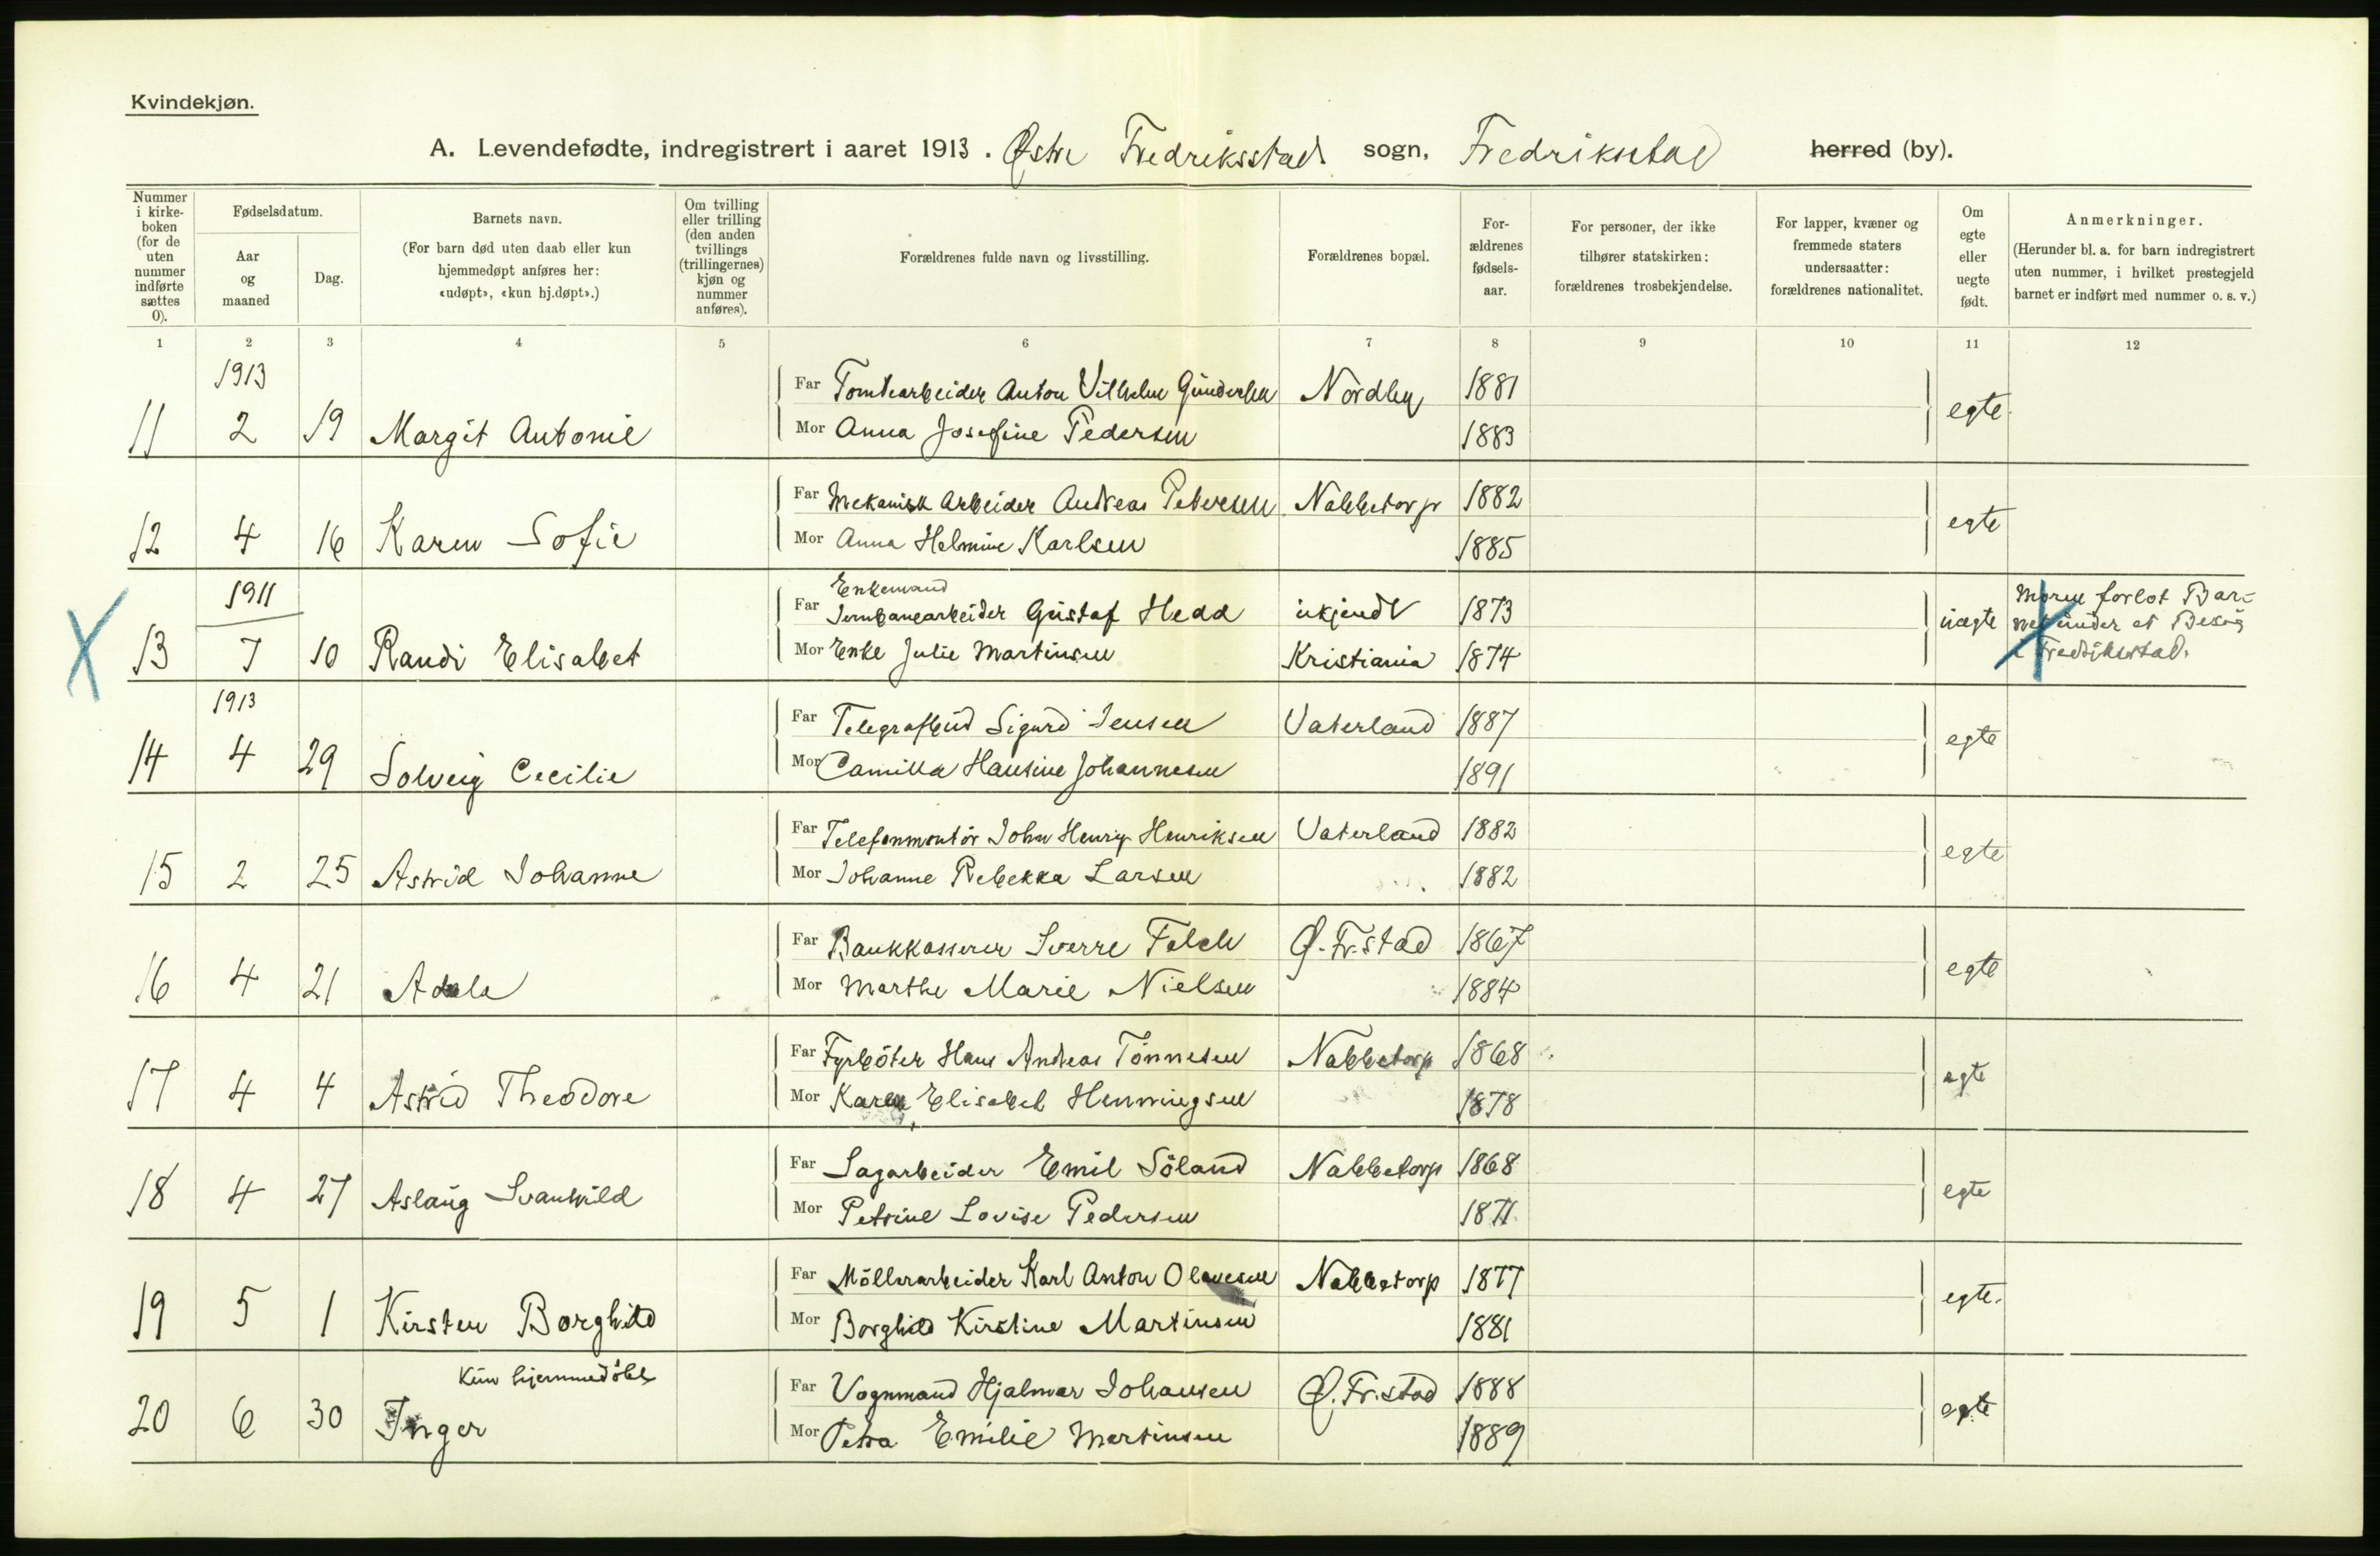 Kvindekjøn.
A. Levendefødte, indregistrert i aaret 1913. Østre Fredriksstad sogn, Fredrikstad herred (by).
Nummer i kirke-boken (for de uten nummer indførte sættes 0).
Fødselsdatum.
Aar og maaned
Dag.
Barnets navn.
(For barn død uten daab eller kun hjemmedøpt anføres her: «udøpt», «kun hj.døpt».)
Om tvilling eller trilling (den anden tvillings (trillingernes) kjøn og nummer anføres).
Forældrenes fulde navn og livsstilling.
Forældrenes bopæl.
For-ældrenes fødsels-aar.
For personer, der ikke tilhører statskirken: forældrenes trosbekjendelse.
For lapper, kvæner og fremmede staters undersaatter: forældrenes nationalitet.
Om egte eller uegte født.
Anmerkninger.
(Herunder bl. a. for barn indregistrert uten nummer, i hvilket prestegjeld barnet er indført med nummer o. s. v.)
1 2 3 4 5 6 7 8 9 10 11 12
1913
Far Tomtearbeider Anton Vilhelm Gundersen Nordby 1881
11 2 19 Margit Antonie egte.
Mor Anna Josefine Pedersen 1883
Far Mekanisk Arbeider Andreas Petersen Nabbetorp 1882
12 4 16 Karen Sofie egte
Mor Anna Helmine Karlsen 1885
1911
Enkemand
Far Jernbanearbeider Gustaf Hedd ukjendt 1873
13 7 10 Randi Elisabet uegte Moren forlot Bar-
net under et Besøg
i Fredrikstad.
Mor Enke Julie Martinsen Kristiania 1874
1913
Far Telegrafbud Sigurd Jensen Vaterland 1887
14 4 29 Solveig Cecilie egte
Mor Camilla Hansine Johannesen 1891
Far Telefonmontör John Henry Henriksen Vaterland 1882
15 2 25 Astrid Johanne egte
Mor Johanne Rebekka Larsen 1882
Far Bankkasserer Sverre Falch Ø. Fr.stad 1867
16 4 21 Adele egte
Mor Marthe Marie Nielsen 1884
Far Fyrböter Hans Andreas Tönnesen Nabbetorp 1868
17 4 4 Astrid Theodore egte
Mor Karen Elisabet Henningsen 1878
Far Sagarbeider Emil Söland Nabbetorp 1868
18 4 27 Aslaug Svanhild egte
Mor Petrine Lovise Pedersen 1871
Far Möllerarbeider Karl Anton Olavesen Nabbetorp 1877
19 5 1 Kirsten Borghild egte.
Mor Borghild Kirstine Martinsen 1881
Kun hjemmedöbt
Far Vognmand Hjalmar Johansen Ø. Fr.stad 1888
20 6 30 Inger egte
Mor Petra Emilie Martinsen 1889